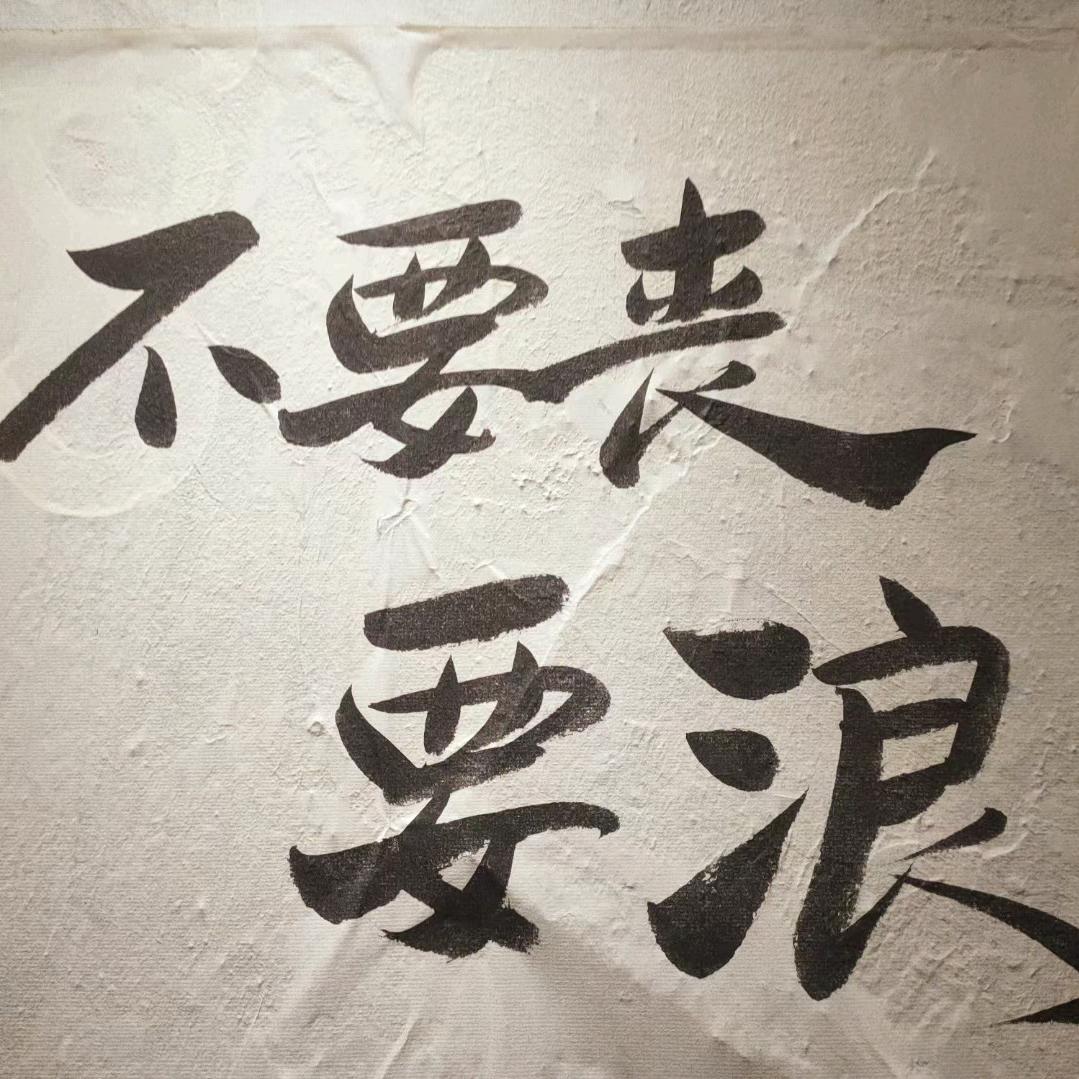 不要丧
要浪